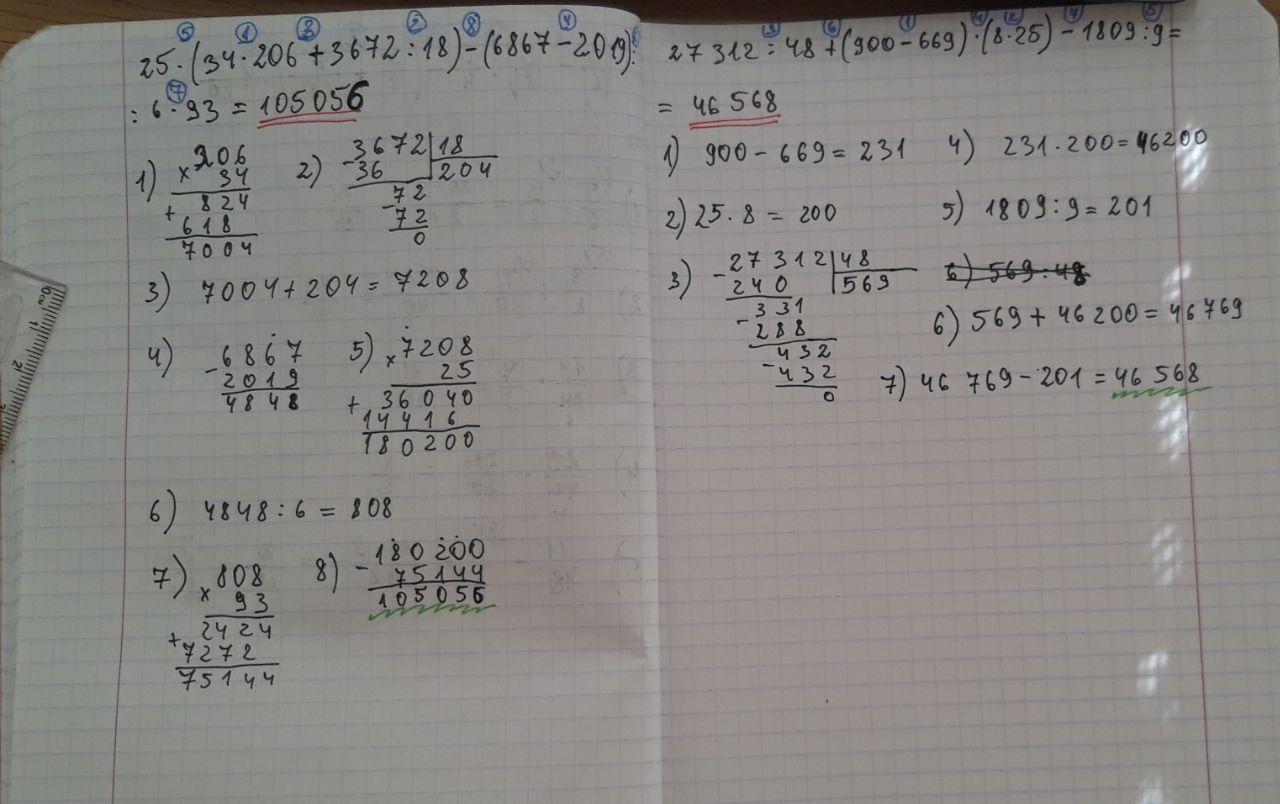 25·(34·206+3672:18)-(6867-2019):
:6·93=105056
1) ×206
34
824
+
618
7004
2) 3672|18
-36 |204
-72
72
0
3) 7004+204=7208
4) -6867
2019
4848
5) ×7208
25
+36040
14416
180200
6) 4848:6=808
7) ×808
93
+2424
7272
75144
8) -180200
75144
105056
27312:48+(900-669)·(8·25)-1809:9=
=46568
1) 900-669=231
2) 25·8=200
3) -27312|48
240 |569
-331
288
-432
432
0
4) 231·200=46200
5) 1809:9=201
6) 569:48
6) 569+46200=46769
7) 46769-201=46568